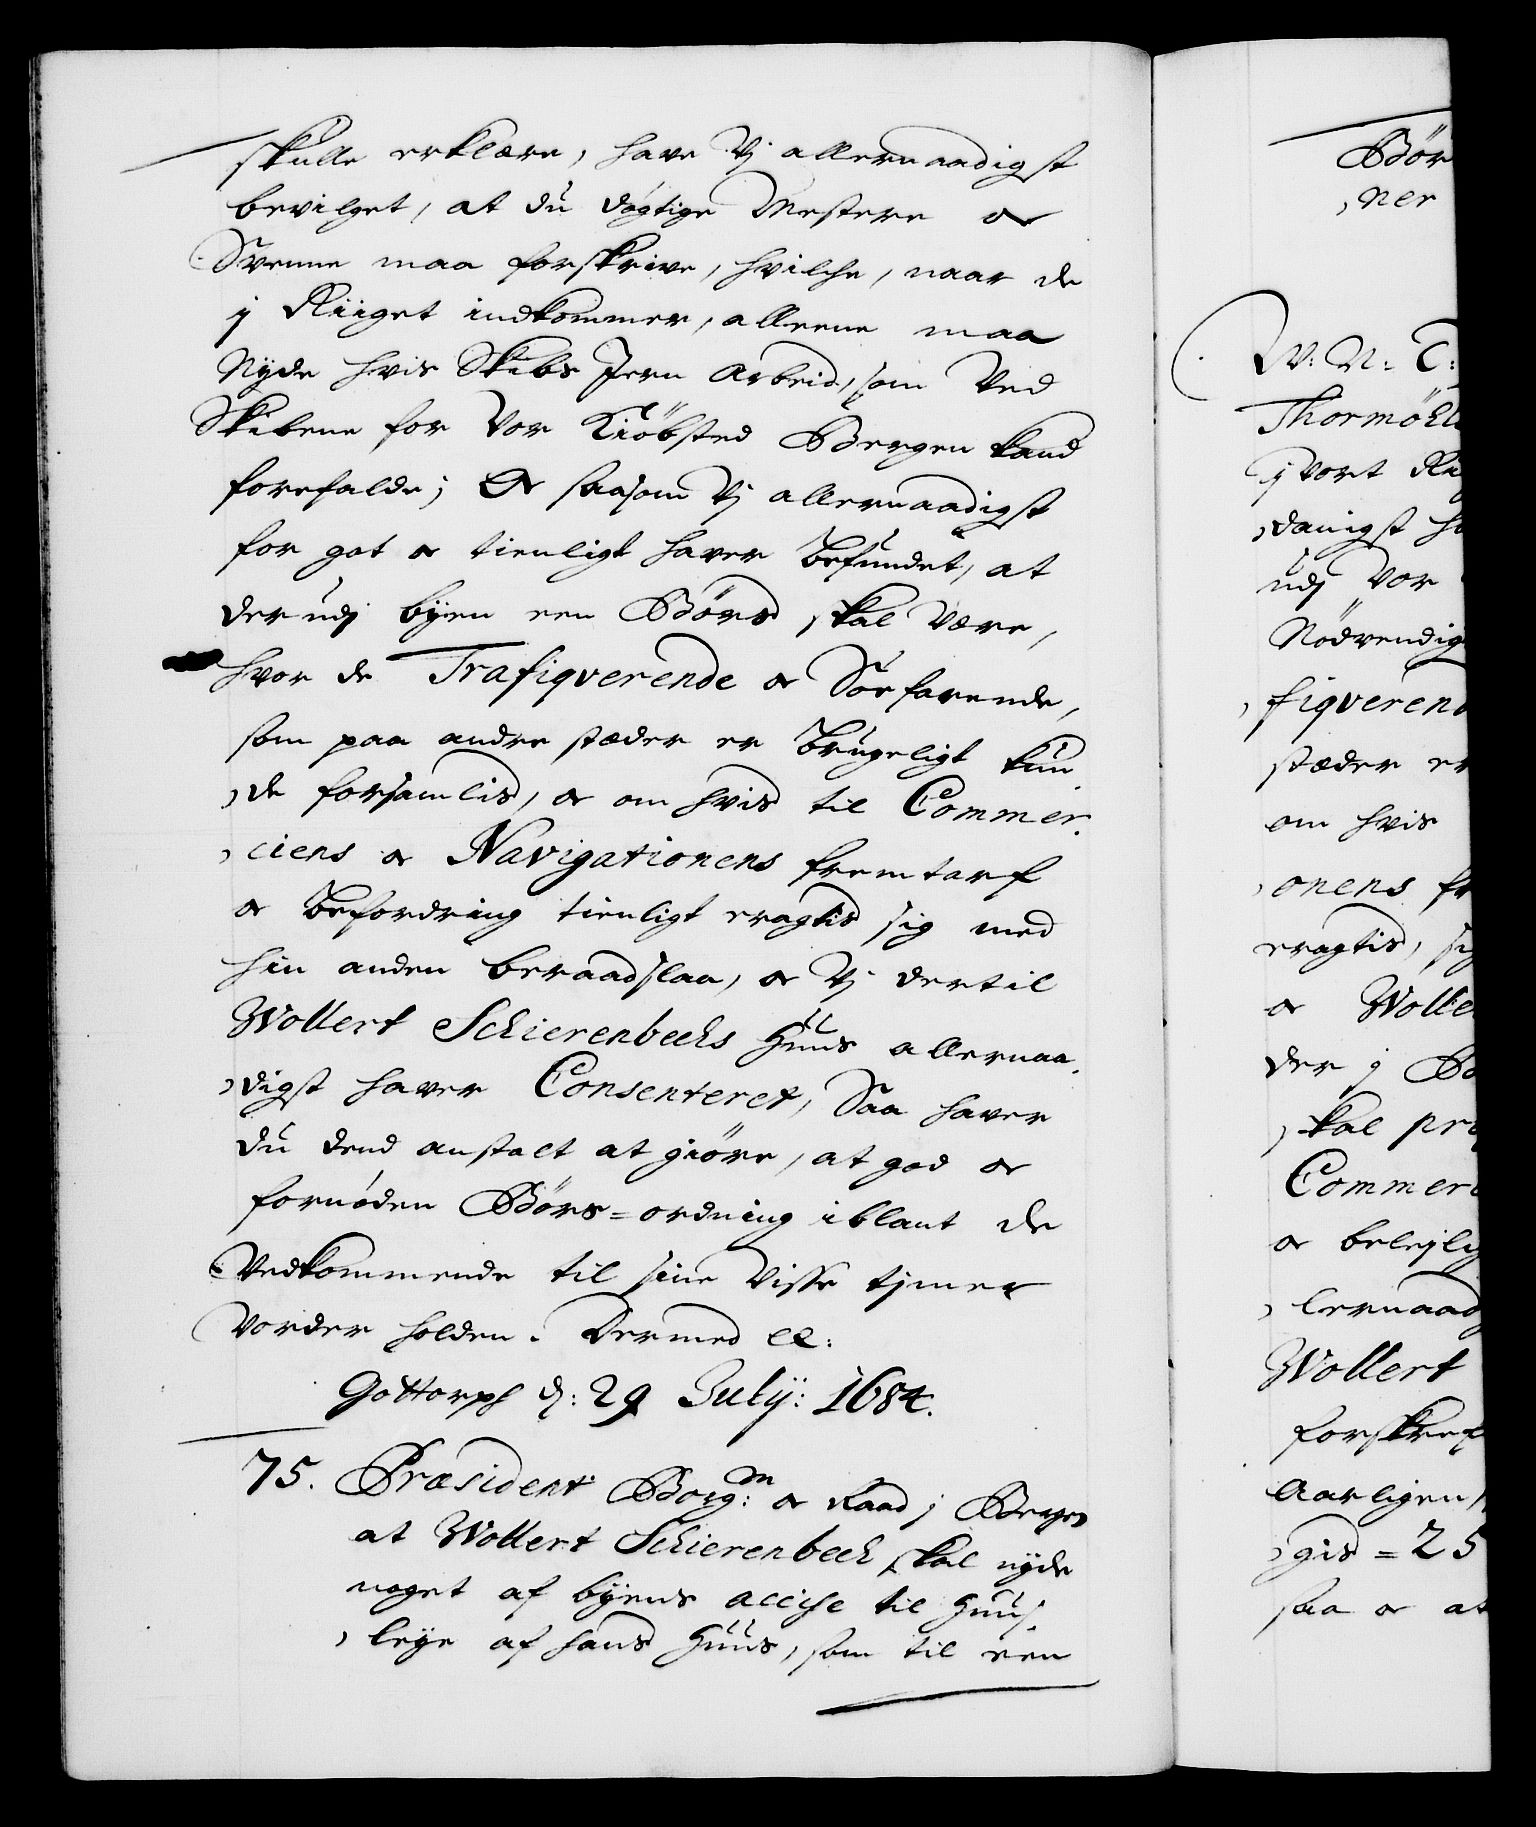 skulle erklære, have Vj allernaadigst
bevilget, at du dögtige Mestere og
Svenne maa forskrive, hvilche, naar de
j Riiget indkommer, alleene maa
Nyde hvis Skibs Jern Arbeid, som Ved
Skibene for Vor Kiöbsted Bergen kand
forefalde; Og saasom Vj allernaadigst
for got og tienligt haver befundet, at
der udj byen een Börs skal være,
hvor de Trafiqverende og Söefarende,
som paa andre stæder er brugeligt kun
de forsamlis, og om hvis til Commer
ciens og Navigationens fremtarf
og befordring tienligt eragtis sig med
hin anden beraadslaa, og Vj dertil
Wollert Schierenbecks Huus allernaa
digst haver Consenteret, Saa haver
du dend anstalt at giöre, at god og
fornöden Börs=ordning iblant de
Vedkommende til sine visse tjmer
Vorder holden. Dermed etc:
Gottorph d: 29 Julij: 1684.
75. Præsident Borg:m og Raad j Bergen
at Wollert Schierenbeck skal nyde
noget af byens accise til Huus
leye af hans Huus, som til een
Bör
ner
W: N: T:
Thormöhl
j vort Ri
danigst ha
udj Vor
Nödvendig
fiqverend
stæder er
om hvis
onens fr
eragtis, sig
og Wolle
der j Bö
skal præ
Commer
og belejlig
lernaad
Wollert
forskref
Aarligen,
gis = 25
saa og at